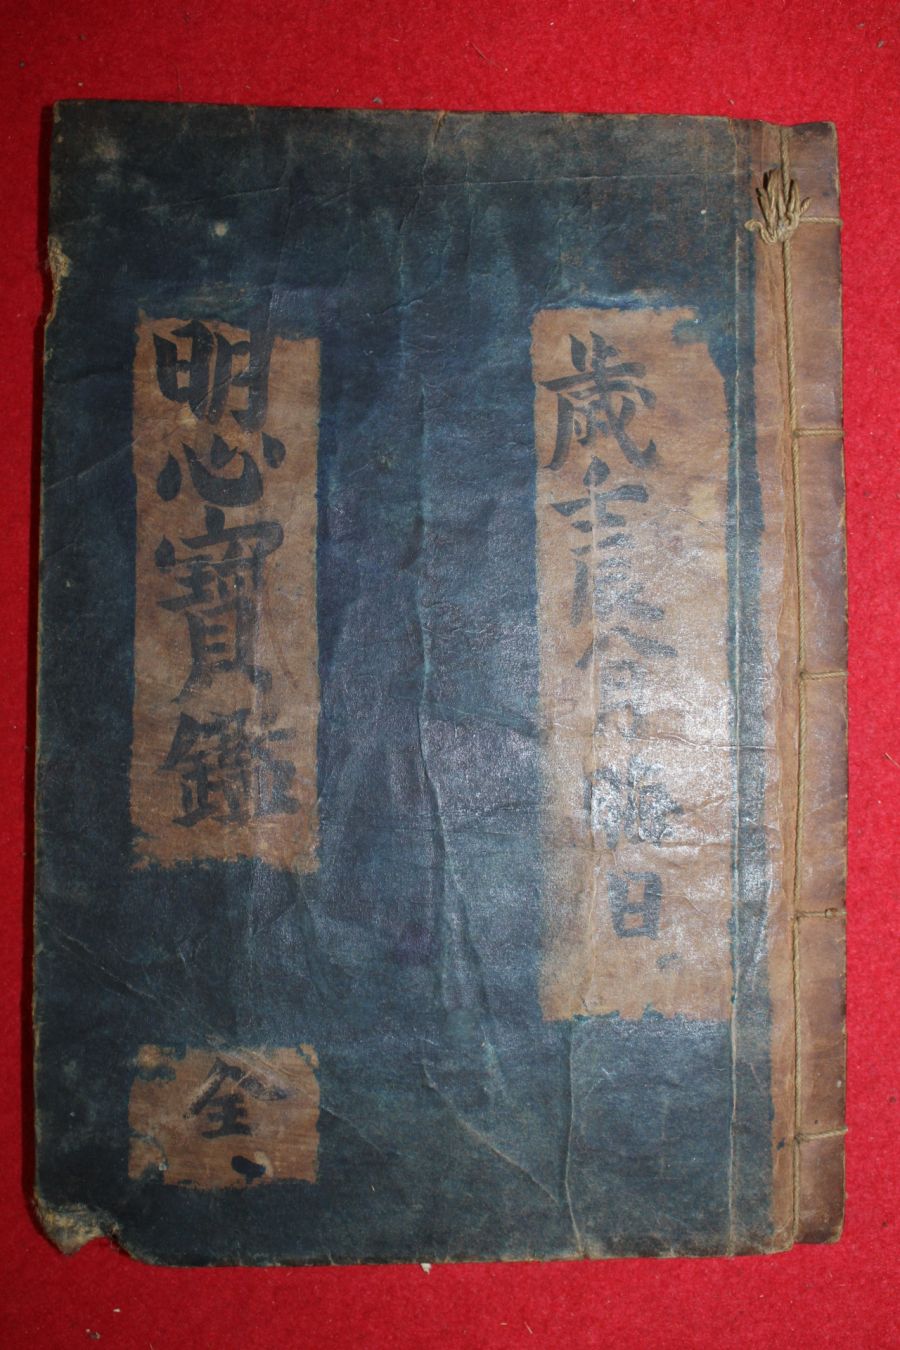 歲壬辰
日
明心寶鑑
全